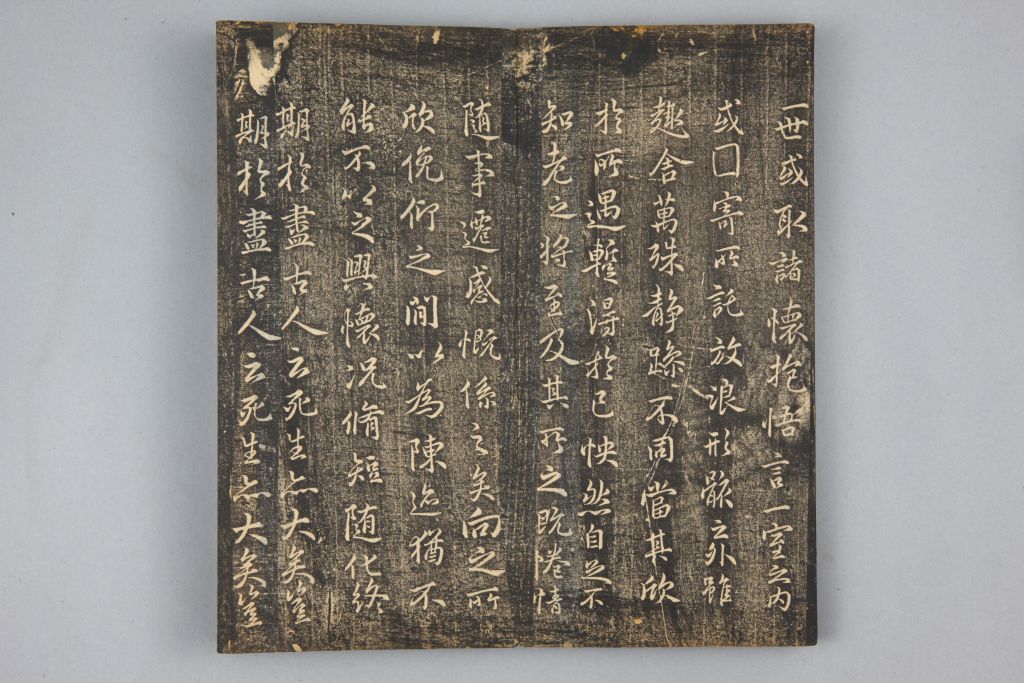 一世或取諸懷抱悟言一室之內
或因寄所託放浪形骸之外雖
趣舍萬殊静躁不同當其欣
於所遇蹔得於己怏然自足不
知老之將至及其所之既惓情
随事遷感慨係之矣向之所
欣俛仰之閒以為陳迹猶不
能不以之興懷況脩短随化終
期於盡古人云死生亦大矣豈
期於盡古人云死生亦大矣豈